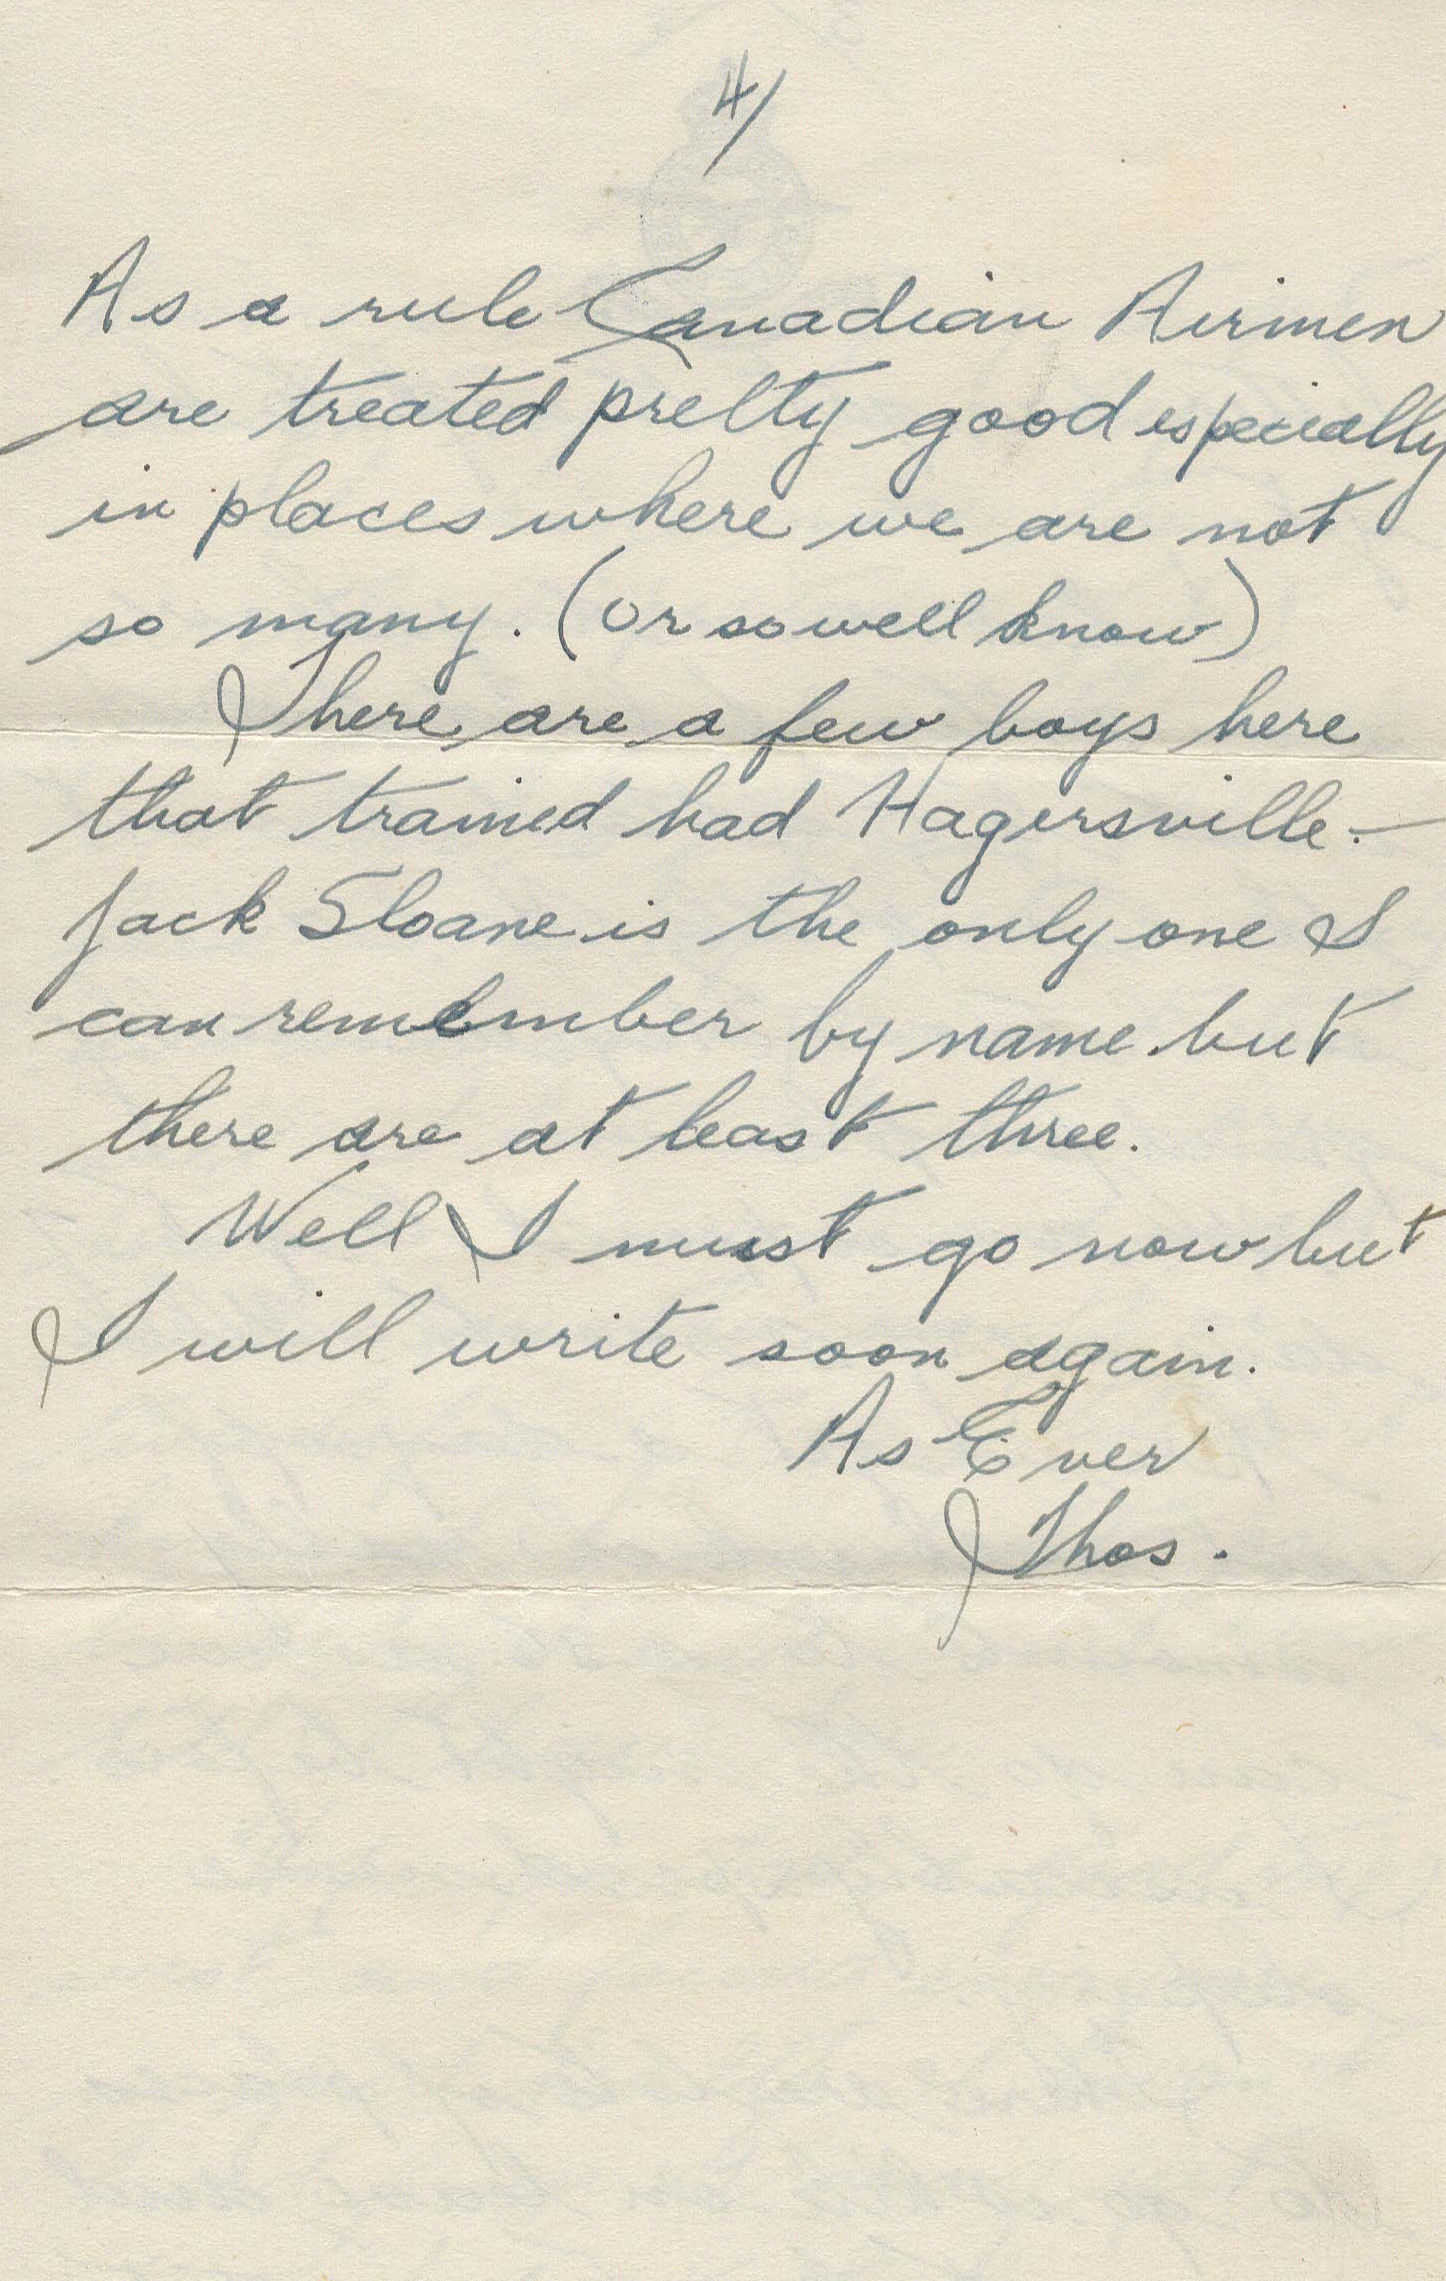 4/
As a rule Canadian Airmen
are treated pretty good especially
in places where we are not
so many. (or so well know)
There are a few boys here
that trained had Hagersville. —
Jack Sloane is the only one I
can remember by name but
there are at least three.
Well I must go now but
I will write soon again.
As Ever
Thos.